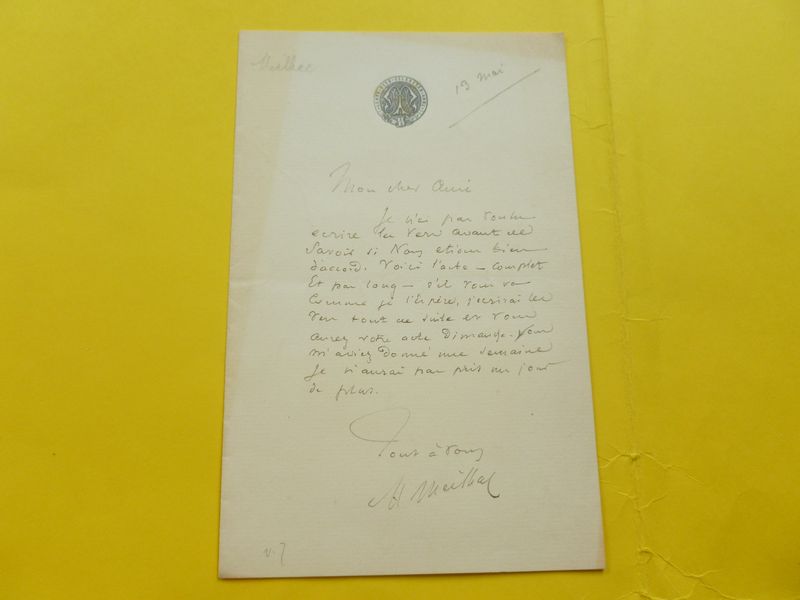 Meilhac
13 mai
Mon cher Ami
Je n'ai pas voulu
ecrire les vers avant de
savoir si Nous etions bien
d'accord. Voici l'acte - complet
Et pas long - s'il vous va
Comme je l'Espère, j'ecrirai les
vers tout de suite et vous
aurez votre acte Dimanche. Vous
m'aviez Donné une semaine
Je n'aurai pas pris un jour
de plus.
Tout à vous
H Meilhac